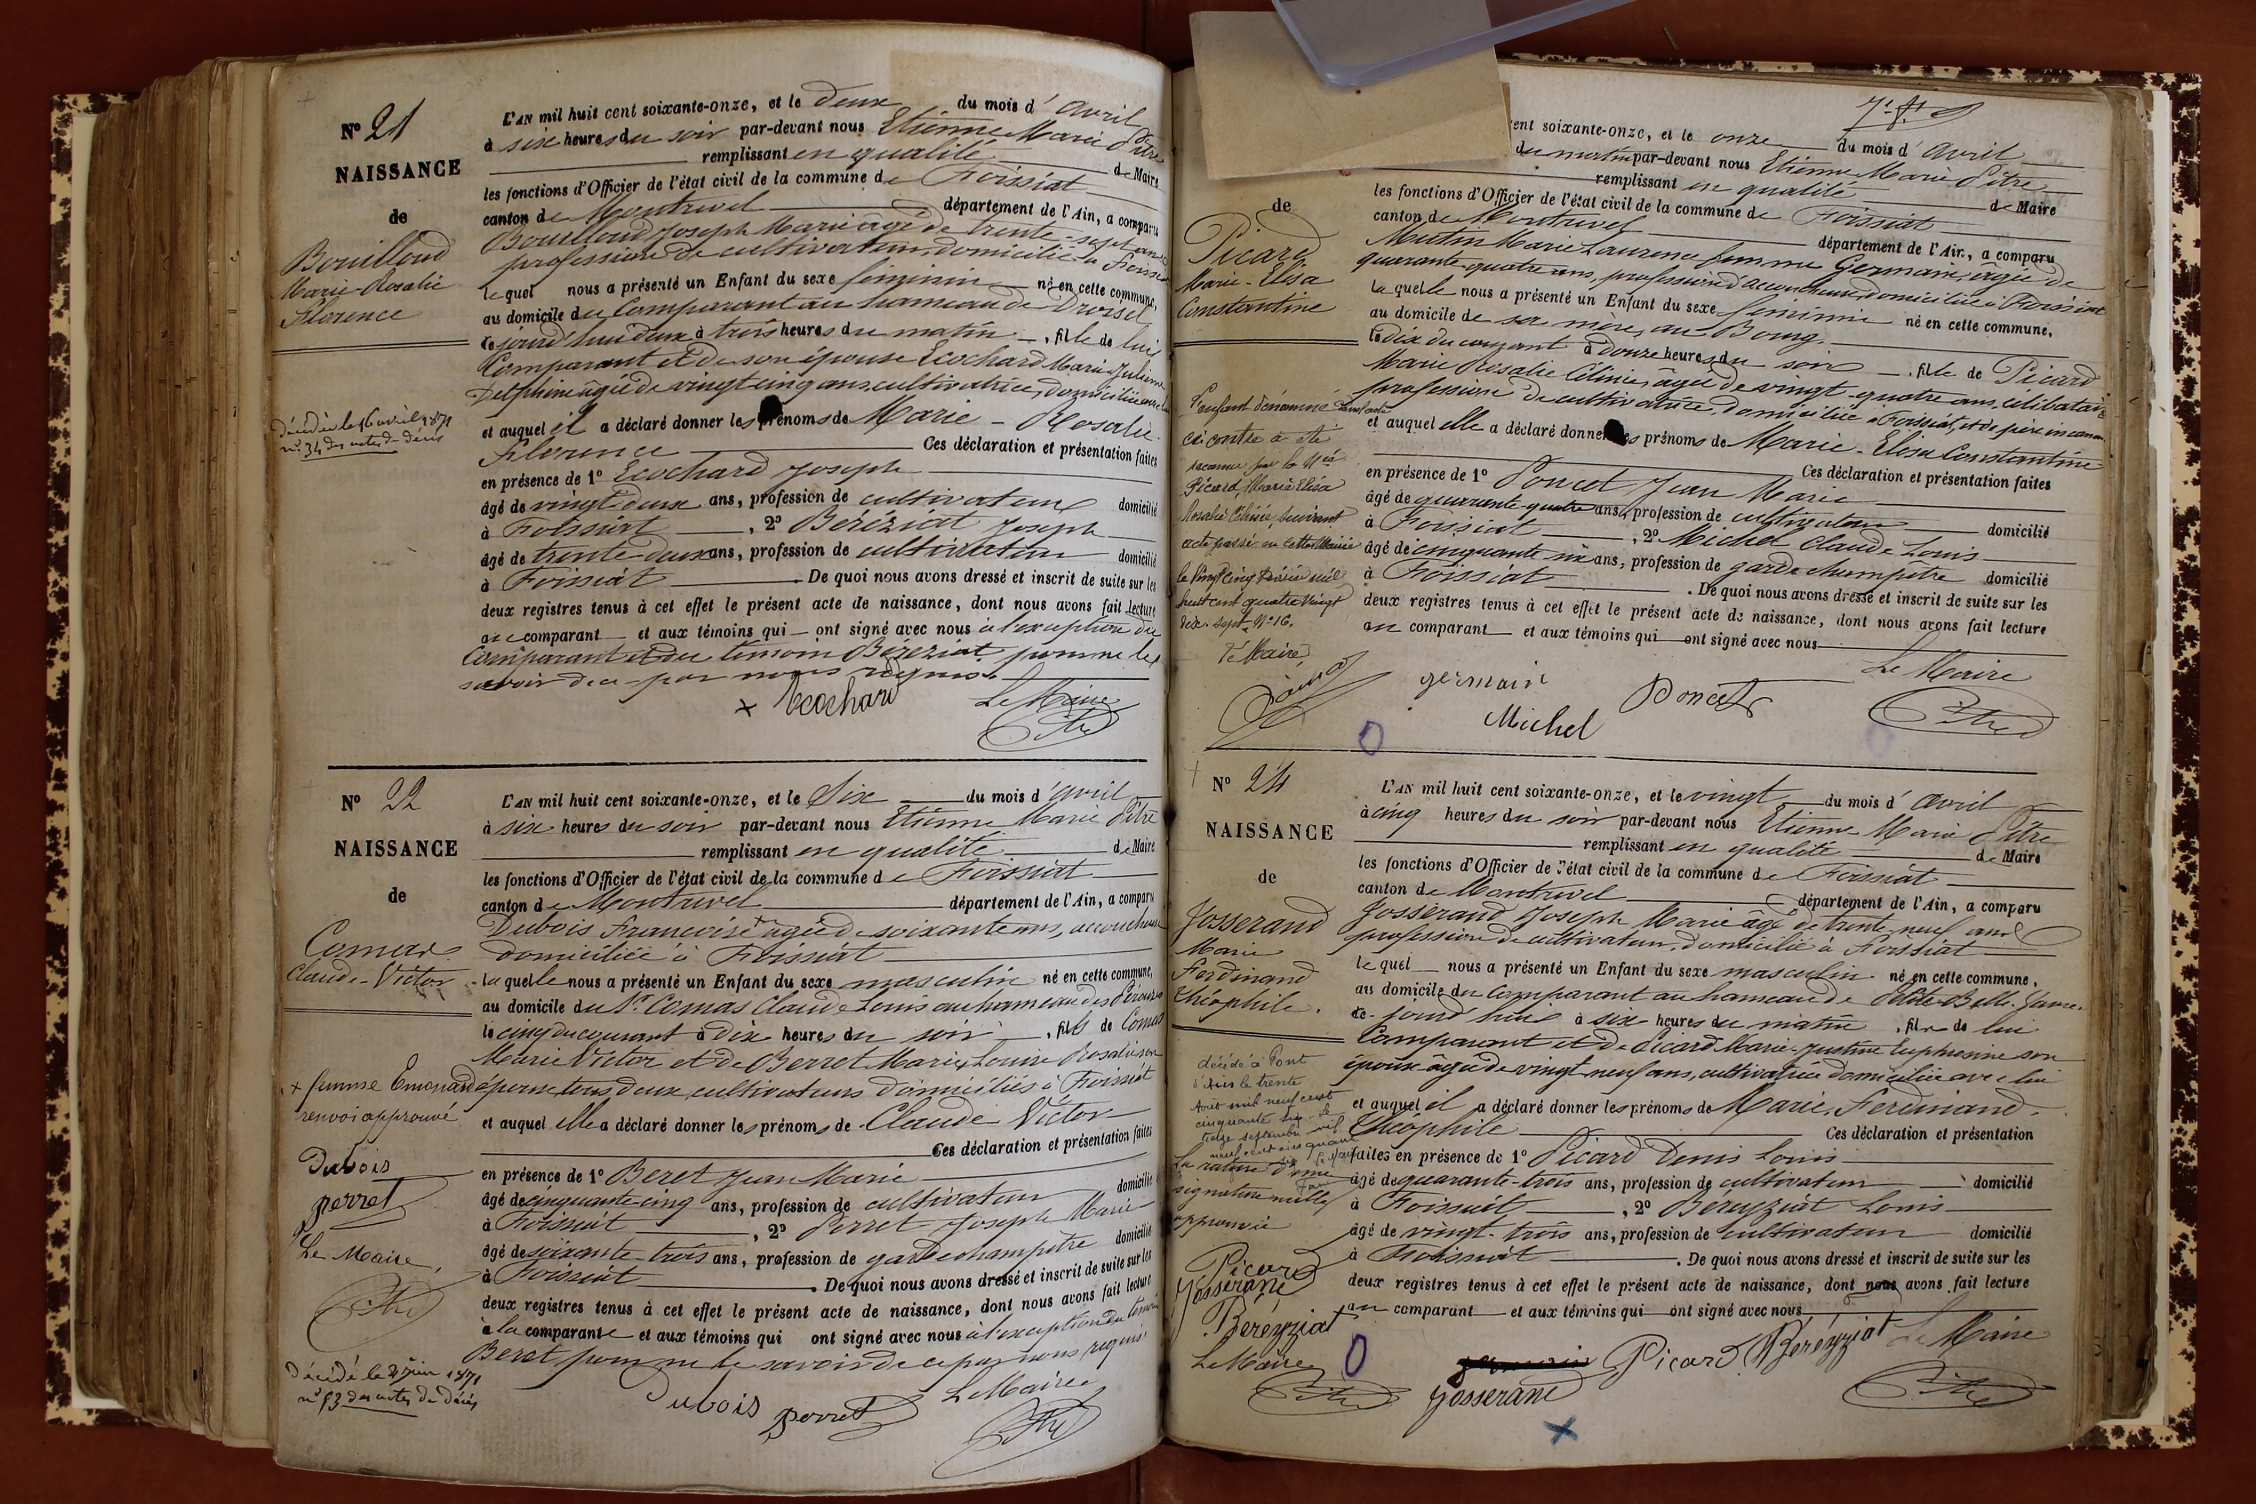 N° 21
NAISSANCE
de
Bouilloud
Marie-Rosalie
Florence
décédée le 16 avril 1871
n° 34 des actes de décès
L'AN mil huit cent soixante-onze, et le deux du mois d'avril
à six heures du soir par-devant nous Etienne Marie Pitre
remplissant en qualité de Maire
les fonctions d'Officier de l'état civil de la commune de Foissiat
canton de Montrevel département de l'Ain, a comparu
Bouilloud Joseph Marie âgé de trente-sept ans
profession de cultivateur, domicilié à Foissiat
lequel nous a présenté un Enfant du sexe féminin né en cette commune,
au domicile du Comparant au hameau de
jourd'hui deux à trois heures du matin, fille de lui
Comparant et de son épouse Ecochard Marie Julienne
Delphine âgée de vingt cinq ans, cultivatrice, domiciliée avec lui
et auquel il a déclaré donner les prénoms de Marie - Rosalie
Florence Ces déclaration et présentation faites
en présence de 1° Ecochard Joseph
âgé de vingt-deux ans, profession de cultivateur domicilié
à Foissiat, 2° Béréziat Joseph
âgé de trente-deux ans, profession de cultivateur domicilié
à Foissiat. De quoi nous avons dressé et inscrit de suite sur les
deux registres tenus à cet effet le présent acte de naissance, dont nous avons fait lecture
au comparant et aux témoins qui ont signé avec nous à l'exception du
Comparant et du témoin Béréziat pour ne le
savoir de ce par nous requis.
Ecochard Le Maire
Pitre
N° 22
NAISSANCE
de
Comas
Claude-Victor
+ femme Emonard
renvoi approuvé
Dubois
perret
Le Maire,
Pitre
Décédé le 4 juin 1871
n° 53 des actes de décès
L'AN mil huit cent soixante-onze, et le Six du mois d'avril
à six heures du soir par-devant nous Etienne Marie Pitre
remplissant en qualité de Maire
les fonctions d'Officier de l'état civil de la commune de Foissiat
canton de Montrevel département de l'Ain, a comparu
Dubois Françoise + âgée de soixante ans, accoucheuse
domiciliée à Foissiat
laquelle nous a présenté un Enfant du sexe masculin né en cette commune,
au domicile du Sr Comas Claude Louis au hameau des
le cinq du courant à dix heures du soir, fils de Comas
Marie Victor et de Berret Marie Louise Rosalie son
épouse tous deux cultivateurs domiciliés à Foissiat
et auquel elle a déclaré donner les prénoms de Claude Victor
Ces déclaration et présentation faites
en présence de 1° Beret Jean Marie
âgé de cinquante-cinq ans, profession de cultivateur domicilié
à Foissiat, 2° Perret Joseph Marie
âgé de soixante-trois ans, profession de garde champêtre domicilié
à Foissiat. De quoi nous avons dressé et inscrit de suite sur les
deux registres tenus à cet effet le présent acte de naissance, dont nous avons fait lecture
à la comparante et aux témoins qui ont signé avec nous à l'exception du témoin
Beret pour ne le savoir de ce par nous requis
Dubois perret Le Maire
Pitre
de
Picard
Marie-Elisa
Constantine
L'enfant dénommé
ci contre a été
reconnu par la
Picard, Marie Elisa
Rosalie Célinie, suivant
acte passé en cette Mairie
le vingt cinq
huit cent quatre vingt
dix-sept N° 16.
Le Maire,
cent soixante-onze, et le onze du mois d'avril
du matin par-devant nous Etienne Marie Pitre
remplissant en qualité de Maire
les fonctions d'Officier de l'état civil de la commune de Foissiat
canton de Montrevel département de l'Ain, a comparu
Mutin Marie Laurence femme Germain, âgée de
quarante-quatre ans, profession d'accoucheuse, domiciliée à Foissiat
laquelle nous a présenté un Enfant du sexe féminin né en cette commune.
au domicile de sa mère, au Bourg.
le dix du courant à douze heures du soir, fille de Picard
Marie Rosalie Célinie, âgée de vingt-quatre ans, célibataire
profession de cultivatrice, domiciliée à Foissiat, et de père inconnu
et auquel elle a déclaré donner les prénoms de Marie-Elisa Constantine
Ces déclaration et présentation faites
en présence de 1° Poncet Jean Marie
âgé de quarante-quatre ans, profession de cultivateur domicilié
à Foissiat, 2° Michel Claude Louis
âgé de cinquante six ans, profession de garde champêtre domicilié
à Foissiat. De quoi nous avons dressé et inscrit de suite sur les
deux registres tenus à cet effet le présent acte de naissance, dont nous avons fait lecture
au comparant et aux témoins qui ont signé avec nous
Le Maire
germain Poncet
Michel Pitre
N° 24
NAISSANCE
de
Josserand
Marie
Ferdinand
Théophile.
décédé à Pont
d'Ain le trente
Août mil neuf cent
cinquante
treize septembre mil
neuf cent cinquante
La rature d'une
signature nulle
approuvée
Picard
Josserand
Béréyziat
Le Maire
Pitre
L'AN mil huit cent soixante-onze, et le vingt du mois d'avril
à cinq heures du soir par-devant nous Etienne Marie Pitre
remplissant en qualité de Maire
les fonctions d'Officier de l'état civil de la commune de Foissiat
canton de Montrevel département de l'Ain, a comparu
Josserand Joseph Marie âgé de trente-neuf ans
profession de cultivateur, domicilié à Foissiat
lequel nous a présenté un Enfant du sexe masculin né en cette commune.
au domicile du Comparant au hameau de
jourd'hui à six heures du matin, fils de lui
Comparant et de Picard Marie-Justine Euphrosine son
épouse âgée de vingt-neuf ans, cultivatrice domiciliée avec lui
et auquel il a déclaré donner les prénoms de Marie-Ferdinand-
Théophile Ces déclaration et présentation
faites en présence de 1° Picard Denis Louis
âgé de quarante-trois ans, profession de cultivateur domicilié
à Foissiat, 2° Béréyziat Louis
âgé de vingt-trois ans, profession de cultivateur domicilié
à Foissiat. De quoi nous avons dressé et inscrit de suite sur les
deux registres tenus à cet effet le présent acte de naissance, dont nous avons fait lecture
au comparant et aux témoins qui ont signé avec nous
Picard Béréyziat Le Maire
Josserand Pitre